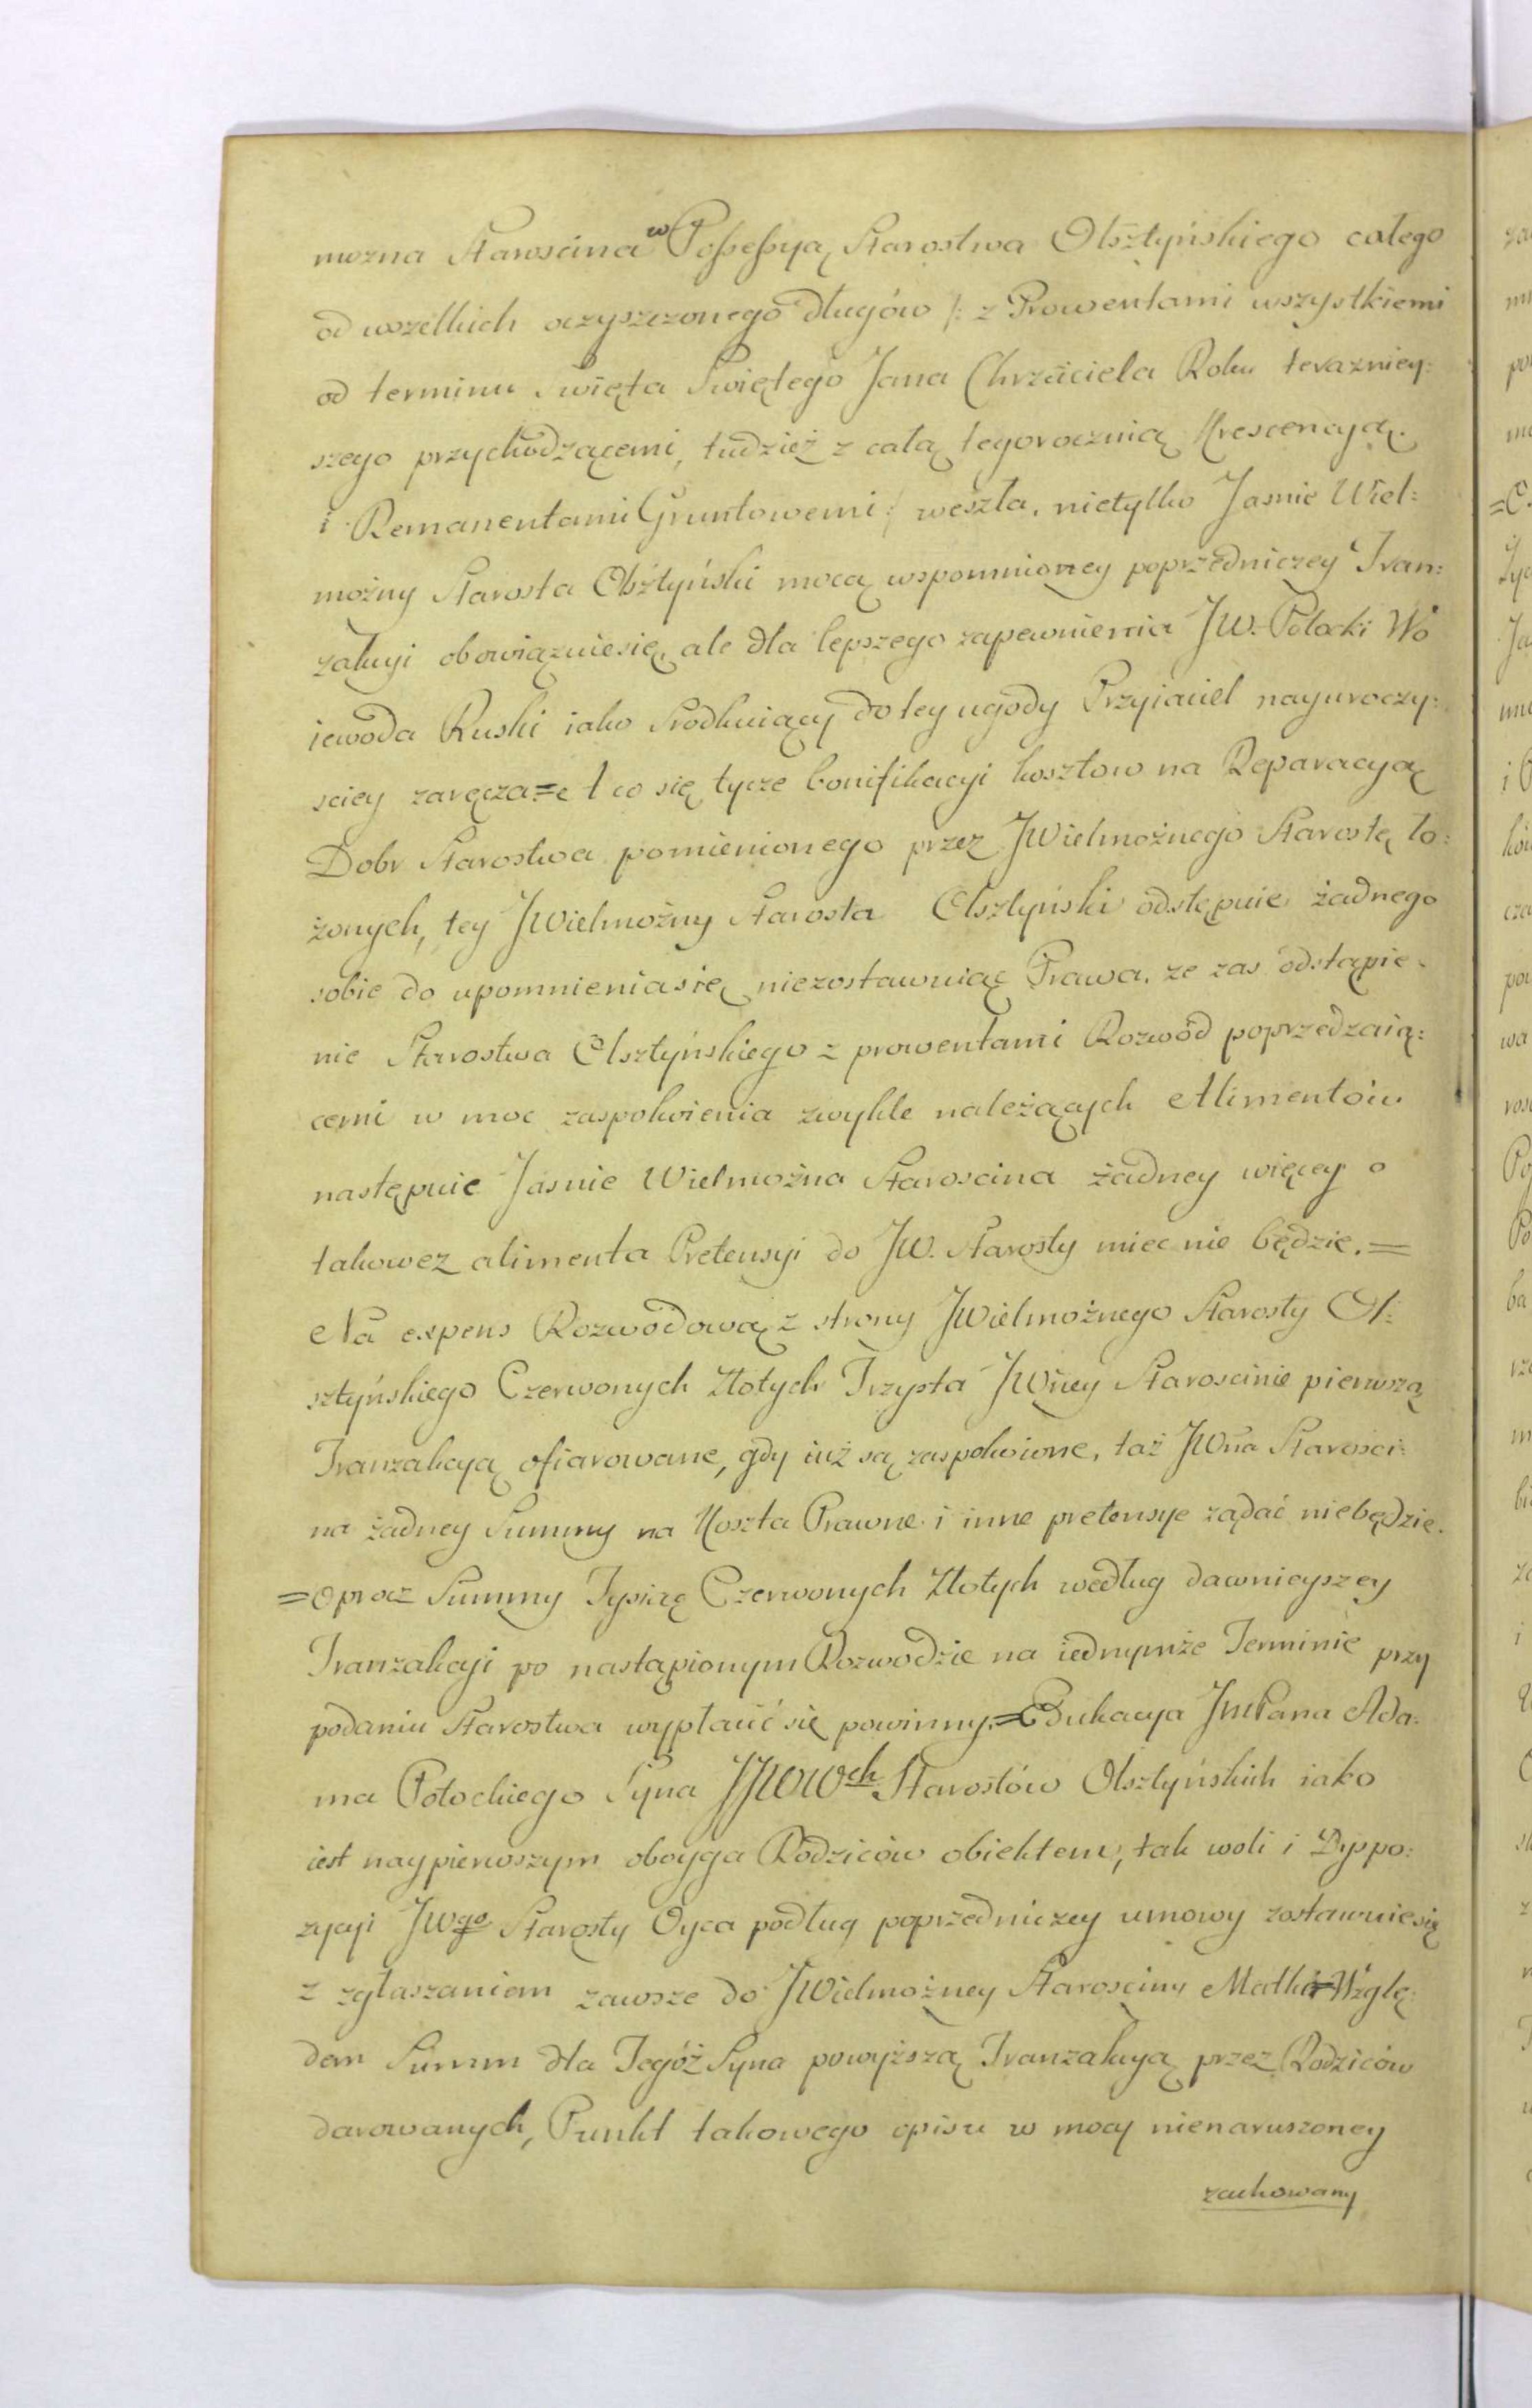 mozna Staroscina w Possessyą Starostwa Olsztyńskiego całego
od wszelkich oczyszczonego długów /: z Prowentami wszystkiemi
od terminu swięta Swiętego Jana Chrzciciela Roku terazniey:
szego przychodzącemi, tudzież z całą tegorocznią Krescencyą
i Remanentami Gruntowemi :/ weszła, nietylko Jasnie Wiel:
możny Starosta Olsztyński mocą wspomnioney poprzedniczey Tran:
zakcyi obowiązuiesię, ale dla lepszego zapewnienia JW. Potocki Wo
iewoda Ruski iako srodkuiący do tey ugody Przyiaciel nayuroczy:
sciey zaręcza= A co się tycze bonifikacyi kosztow na Reparacyą
Dobr Starostwa pomienionego przez JWielmożnego Starostę ło:
żonych, tey JWielmożny Starosta Olsztyński odstępuie żadnego
sobie do upomnieniasię niezostawuiąc Prawa, ze zas odstąpie
nie Starostwa Olsztyńskiego z prowentami Rozwód poprzedzaią:
cemi w moc zaspokoienia zwykle należących Alimentów
następuie Jasnie Wielmożna Staroscina żadney więcey o
takowez alimenta Pretensyi do JW. Starosty miec nie będzie. =
Na expens Rozwodową z strony JWielmożnego Starosty Ol:
sztyńskiego Czerwonych Złotych Trzysta JWney Staroscinie pierwszą
Tranzakcyą ofiarowane, gdy iuż są zaspokoione, taż JWna Starosci:
na żadney Summy na Koszta Prawne i inne pretensye żądać niebędzie.
= oprocz Summy Tysiąc Czerwonych Złotych według dawnieyszey
Tranzakcyi po nastąpionym Rozwodzie na iednymże Terminie przy
podaniu Starostwa wypłacić się powinny. = Edukacya JmPana Ada:
ma Potockiego Syna JJWWch Starostów Olsztyńskich iako
iest naypierwszym oboyga Rodziców obiektem, tak woli i Dyspo:
zycyi JWgo Starosty Oyca podług poprzedniczey umowy zostawuiesię
z zgłaszaniem zawsze do JWielmożney Starosciny Matki = Wzglę:
dem Summ dla Tegóż Syna powyższą Tranzakcyą przez Rodziców
darowanych, Punkt takowego opisu w mocy nienaruszoney
zachowany